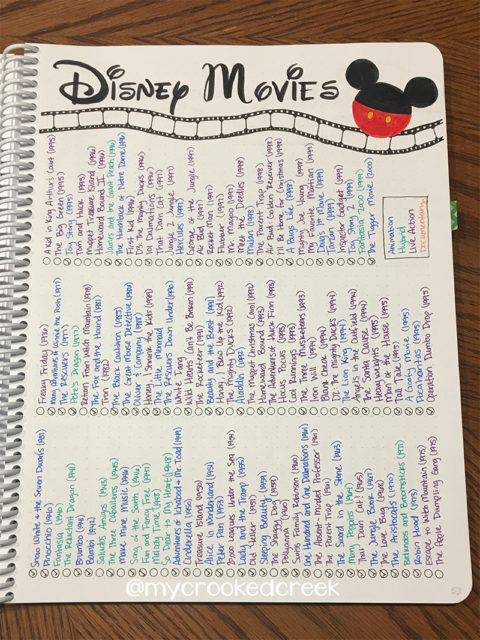 DISNEY MOVIES
Animation
Hybrid
Live Action
Documentary
Snow White & the Seven Dwarfs (1937)
Pinocchio (1940)
Fantasia (1940)
The Reluctant Dragon (1941)
Dumbo (1941)
Bambi (1942)
Saludos Amigos (1942)
The Three Caballeros (1945)
Make Mine Music (1946)
Song of the South (1946)
Fun and Fancy Free (1947)
Melody Time (1948)
So Dear to My Heart (1948)
Adventures of Ichabod & Mr. Toad (1949)
Cinderella (1950)
Treasure Island (1950)
Alice in Wonderland (1951)
Peter Pan (1953)
20,000 Leagues Under the Sea (1954)
Lady and the Tramp (1955)
Old Yeller (1957)
Sleeping Beauty (1959)
The Shaggy Dog (1959)
Pollyanna (1960)
Swiss Family Robinson (1960)
One Hundred and One Dalmatians (1961)
The Absent-Minded Professor (1961)
The Parent Trap (1961)
The Sword in the Stone (1963)
Mary Poppins (1964)
That Darn Cat! (1965)
The Jungle Book (1967)
The Love Bug (1968)
The Aristocats (1970)
Bedknobs and Broomsticks (1971)
Robin Hood (1973)
Escape to Witch Mountain (1975)
The Apple Dumpling Gang (1975)
Freaky Friday (1976)
Many Adventures of Winnie the Pooh (1977)
The Rescuers (1977)
Pete's Dragon (1977)
Return From Witch Mountain (1978)
The Fox and the Hound (1981)
Tron (1982)
The Black Cauldron (1985)
The Great Mouse Detective (1986)
Oliver & Company (1988)
Honey, I Shrunk the Kids (1989)
The Little Mermaid
The Rescuers Down Under (1990)
White Fang
Wild Hearts Can't Be Broken (1991)
The Rocketeer (1991)
Beauty and the Beast (1991)
Honey, I Blew Up the Kid (1992)
The Mighty Ducks (1992)
Aladdin (1992)
The Muppet Christmas Carol (1992)
Homeward Bound (1993)
The Adventures of Huck Finn (1993)
Hocus Pocus (1993)
Cool Runnings (1993)
The Three Musketeers (1993)
Iron Will (1994)
Blank Check (1994)
D2: The Mighty Ducks (1994)
The Lion King (1994)
Angels in the Outfield (1994)
The Santa Clause (1994)
Heavyweights (1995)
Man of the House (1995)
Tall Tale (1995)
A Goofy Movie (1995)
Pocahontas (1995)
Operation Dumbo Drop (1995)
A Kid in King Arthur's Court (1995)
The Big Green (1995)
Toy Story (1995)
Tom and Huck (1995)
Muppet Treasure Island (1996)
Homeward Bound II (1996)
James and the Giant Peach (1996)
The Hunchback of Notre Dame (1996)
First Kid (1996)
D3: The Mighty Ducks (1996)
101 Dalmatians (1996)
That Darn Cat (1997)
Jungle 2 Jungle (1997)
Hercules (1997)
George of the Jungle (1997)
Air Bud (1997)
Rocket Man (1997)
Flubber (1997)
Mr. Magoo (1997)
Meet the Deedles (1998)
Mulan (1998)
The Parent Trap (1998)
Air Bud: Golden Receiver (1998)
I'll Be Home for Christmas (1998)
A Bug's Life (1998)
Mighty Joe Young (1998)
My Favorite Martian (1999)
Doug's 1st Movie (1999)
Tarzan (1999)
Inspector Gadget (1999)
Toy Story 2 (1999)
Fantasia 2000 (1999)
The Tigger Movie (2000)
@mycrookedcreek